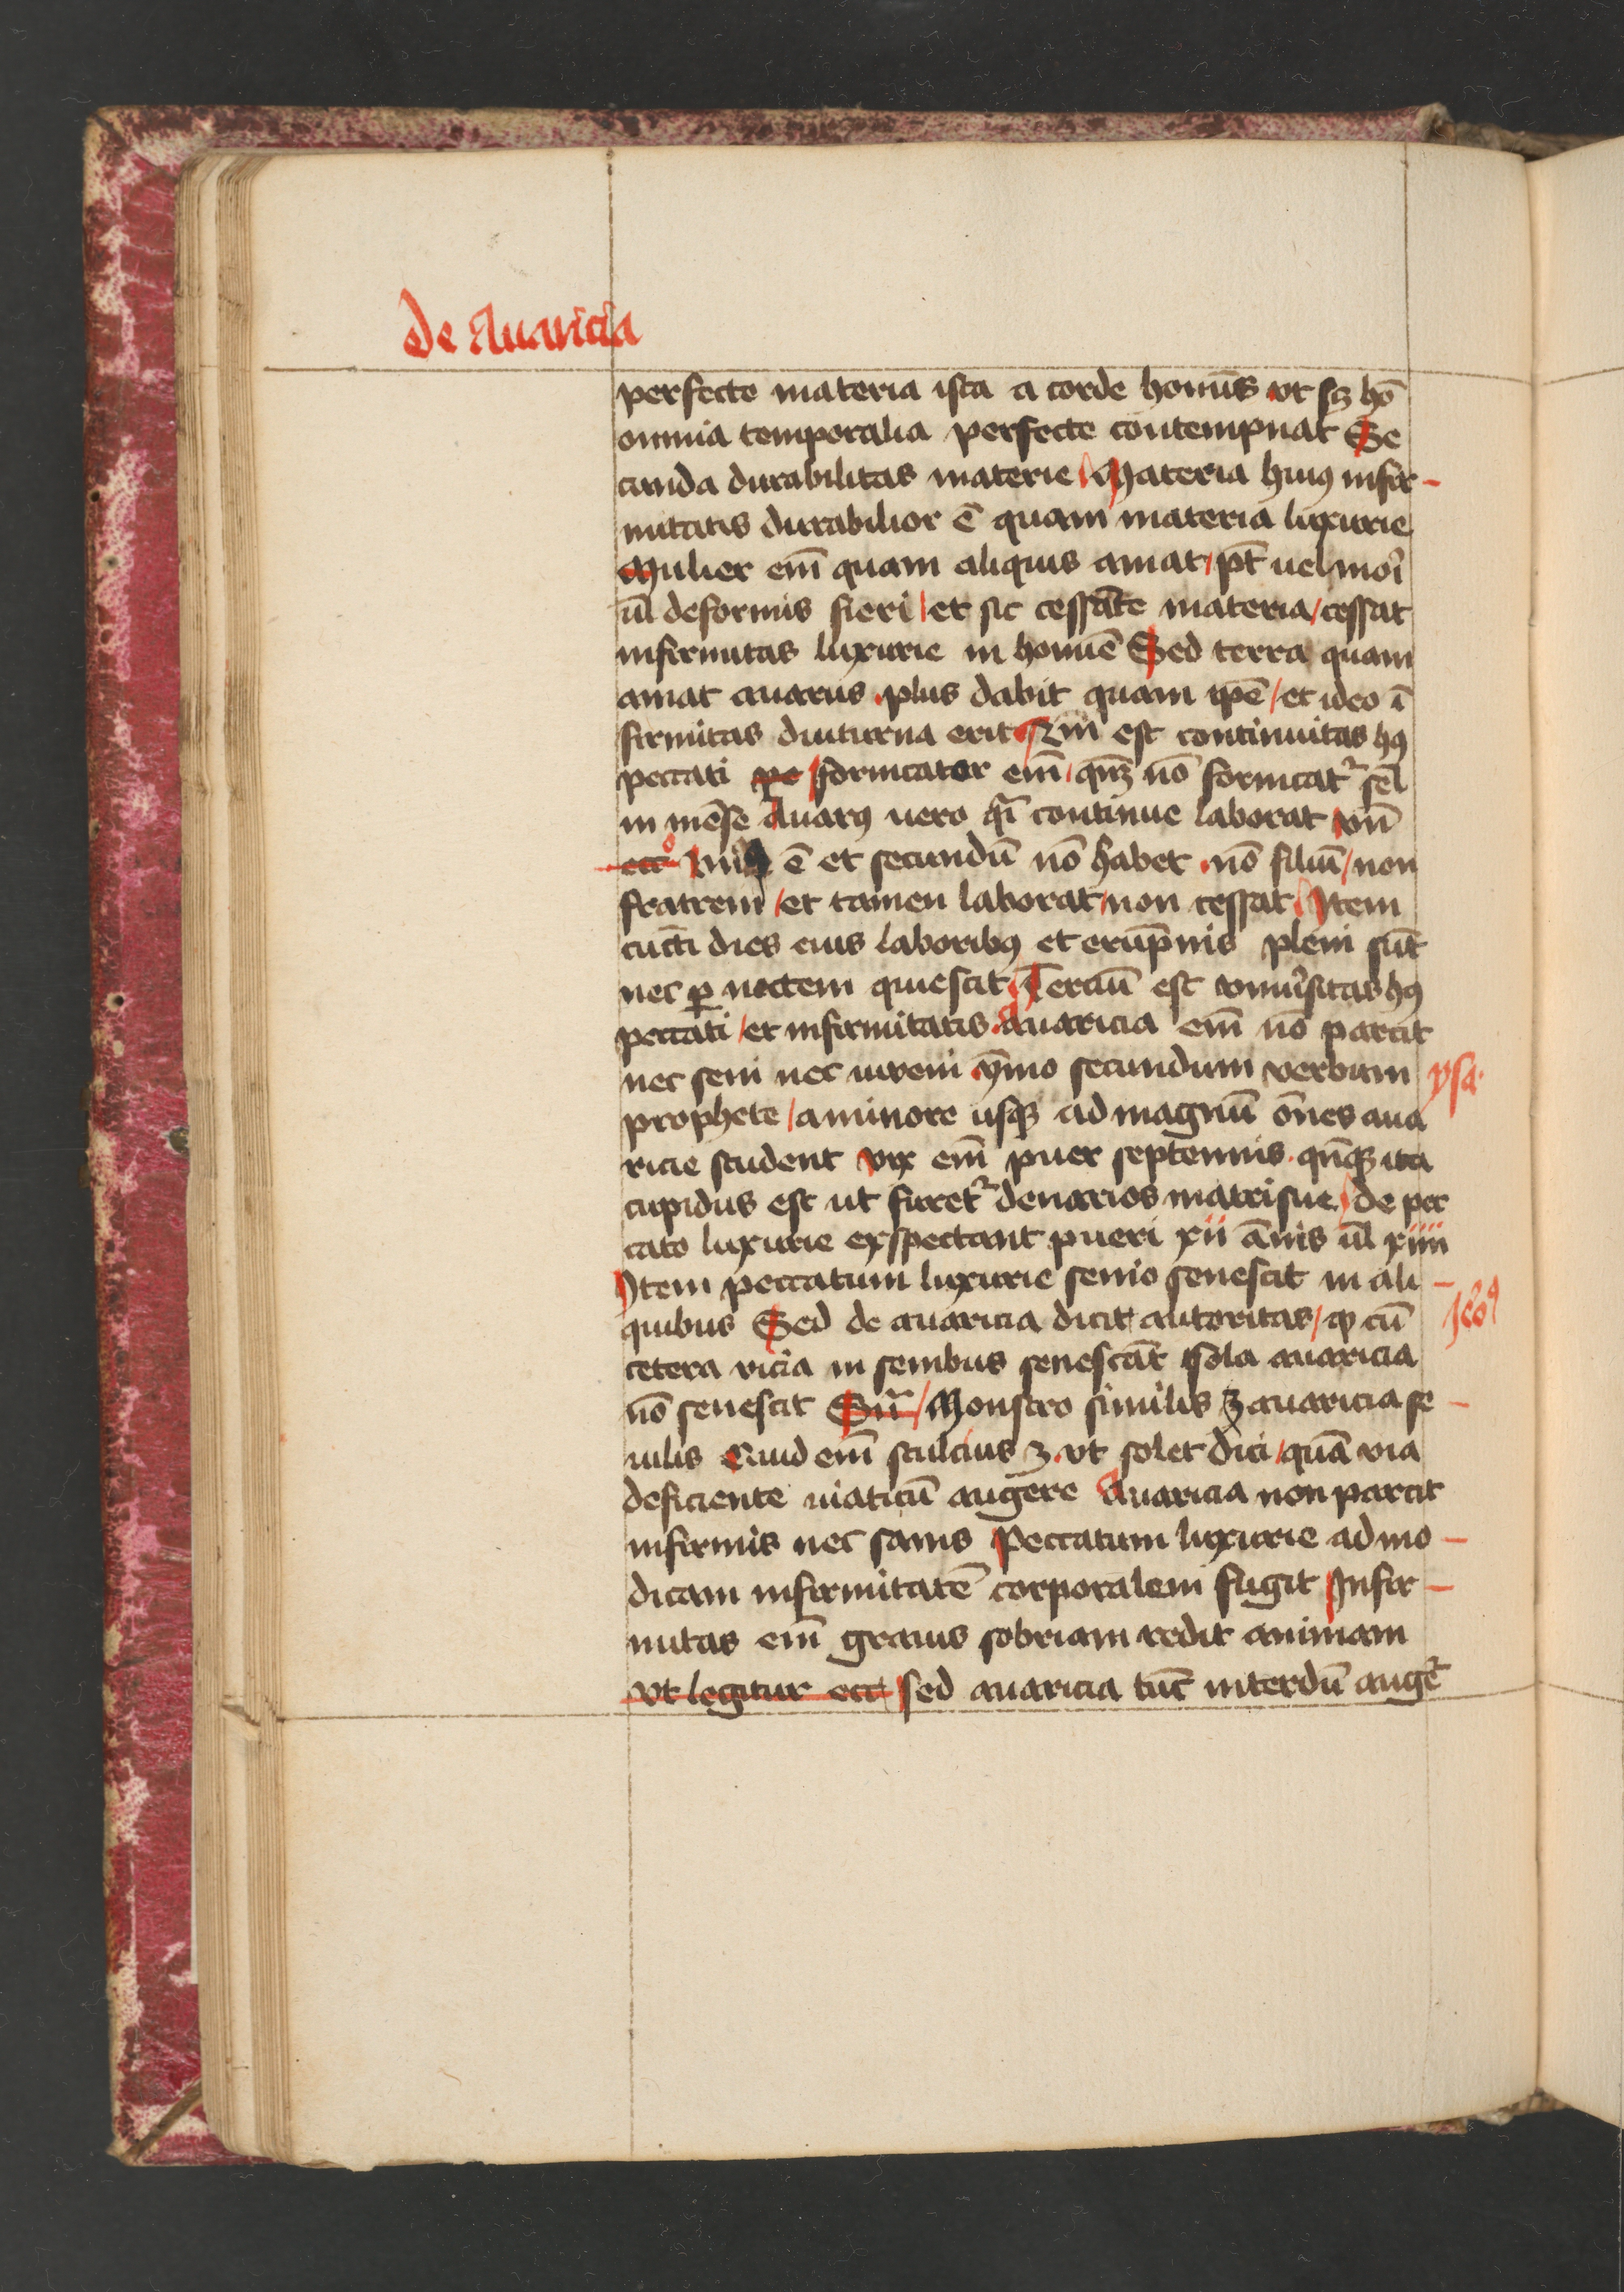 De Auaricia
perfecte materia ista a corde homīs vt sꝫ hō
omnia temporalia perfecte contempnat Se
cunda durabilitas materie Materia huiꝰ infir-
mitatis durabilior ē quam materia luxurie
Mulier em̄ quam aliquis amat / pt̄ uel mori
ul̄ deformis fieri / et sic cessāte materia / cessat
infirmitas luxurie in homiē Sed terra quam
amat auarus plus dabit quam ip̄e / et ideo ī
firmitas diuturna erit est continuitas hꝰ
peccati pe fornicator em̄ / qn̄qꝫ nō fornicatᷣ sel̄
in mēse Auarꝰ uero q̄i continue laborat vn̄
ecc° vnꝰ ē et secundū nō habet nō filiū / non
fratrem / et tamen laborat / non cessat Item
cūcti dies eius laboribꝰ et erūpnis pleni sūt
nec ꝑ noctem quiescit Terciū est vniuˀsitas hꝰ
peccati / et infirmitatis Auaricia em̄ nō parcit
nec seni nec iuveni ȳmo secundum verbum
ysa.
prophete / a minore usqꝫ ad magnū om̄es aua
ricie student vix em̄ puer septennis qn̄qꝫ ita
cupidus est ut furetᷣ denarios matri sue / de pec
cato luxurie exspectant pueri xii ānis ul̄ xiiii
Item peccatum luxurie senio senescit in ali-
quibus Sed de auaricia dicit autoritas / ꝙ cū
Jeōꝰ
cetera vicia in senibus senescāt sola auaricia
nō senescit / Monstro similis ꝫ auaricia se-
nilis Quid em̄ stulcius ꝫ vt solet dici / quā via
deficiente uiaticū augere Auaricia non parcit
infirmis nec sanis Peccatum luxurie ad mo-
dicam infirmitatē corporalem fugit Infir-
mitas em̄ grauis sobriam redit animam
vt legitur ecc sed auaricia tūc interdū augeᷣ